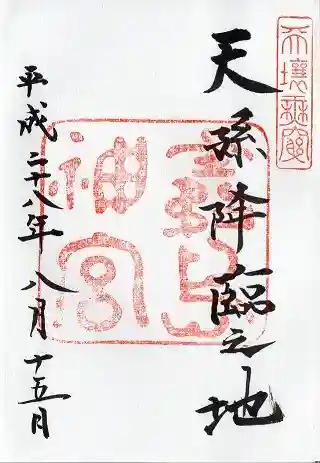 天壌無窮
天孫降臨之地
霧島
神宮
平成二十八年八月十五日